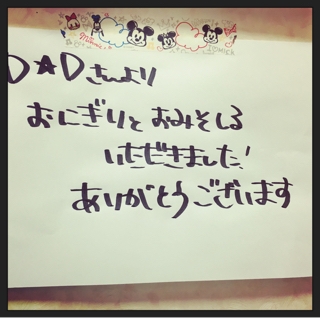 D★Dさんより
おにぎりとおみそしる
いただきました!
ありがとうございます